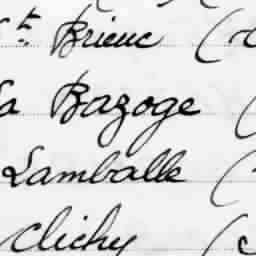 St. Brieuc (
La Bazoge (
Lamballe (
Clichy (